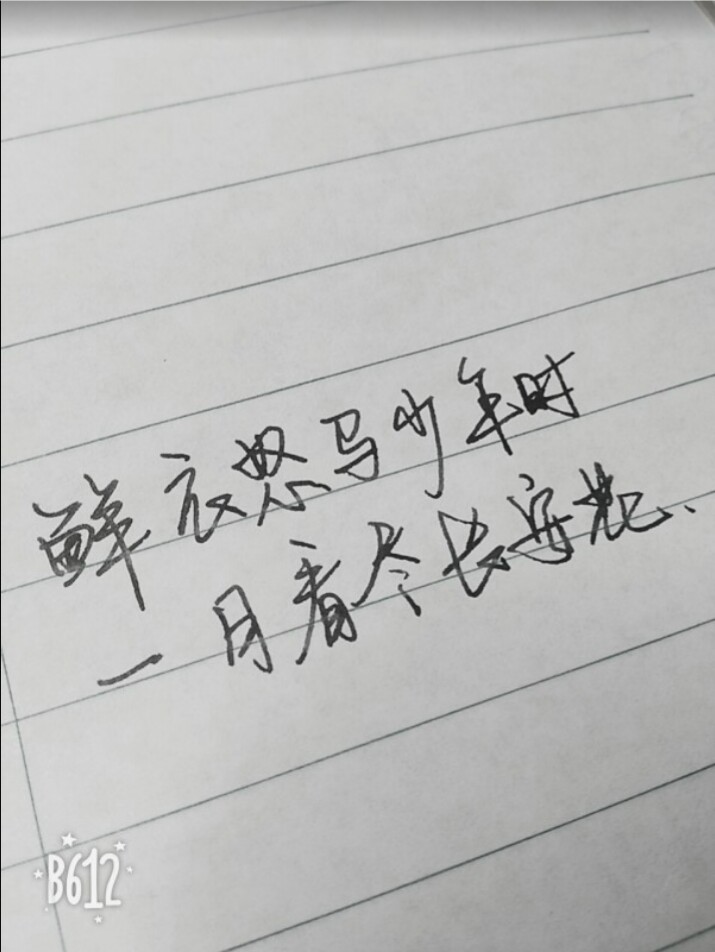 鲜衣怒马少年时
一日看尽长安花.
B612